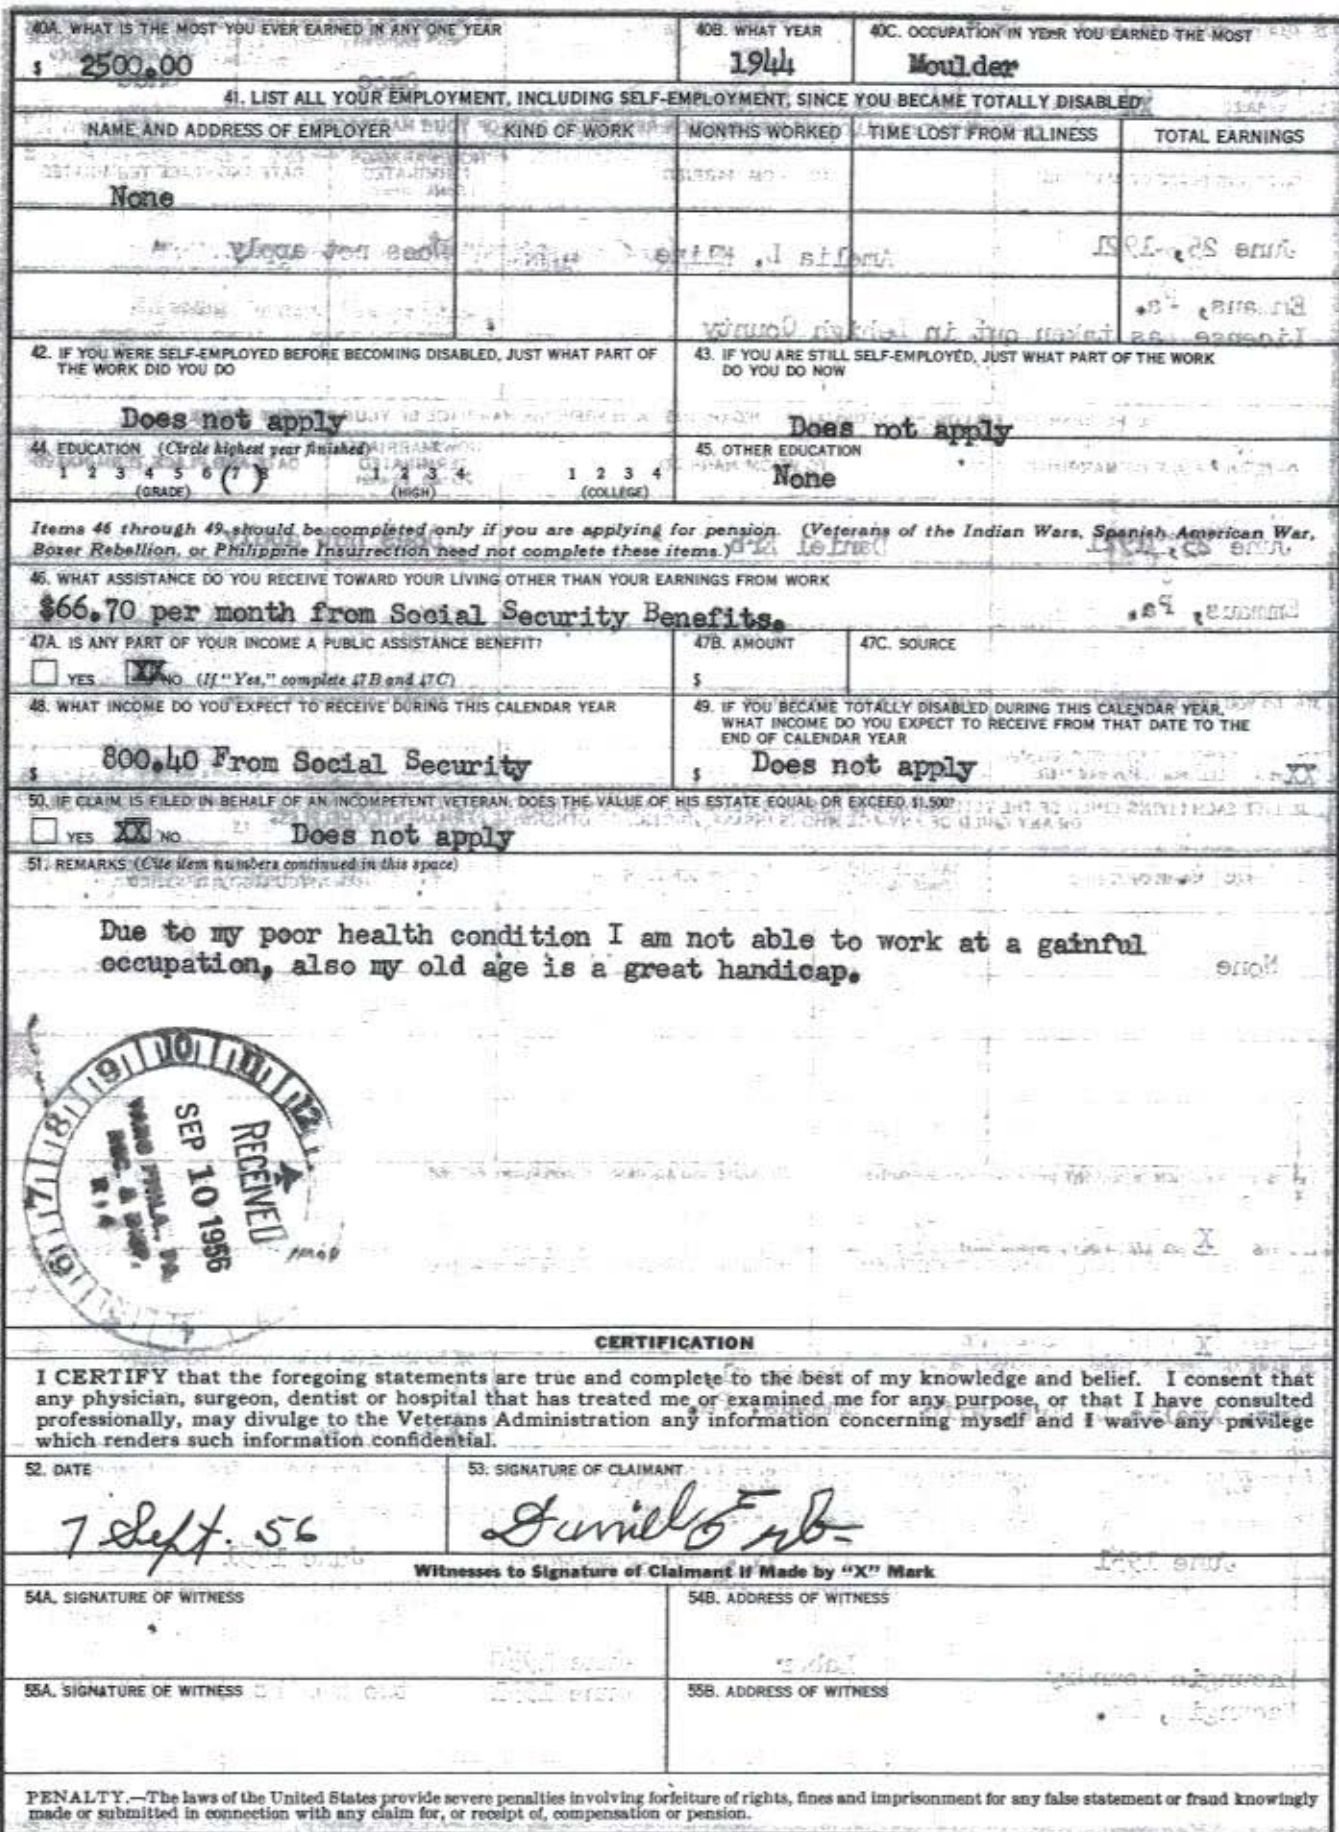 40A. WHAT IS THE MOST YOU EVER EARNED IN ANY ONE YEAR
$ 2500.00
40B. WHAT YEAR
1944
40C. OCCUPATION IN YEAR YOU EARNED THE MOST
Moulder
41. LIST ALL YOUR EMPLOYMENT, INCLUDING SELF-EMPLOYMENT, SINCE YOU BECAME TOTALLY DISABLED
NAME AND ADDRESS OF EMPLOYER KIND OF WORK MONTHS WORKED TIME LOST FROM ILLINESS TOTAL EARNINGS
None
$
42. IF YOU WERE SELF-EMPLOYED BEFORE BECOMING DISABLED, JUST WHAT PART OF
THE WORK DID YOU DO
Does not apply
43. IF YOU ARE STILL SELF-EMPLOYED, JUST WHAT PART OF THE WORK
DO YOU DO NOW
Does not apply
44. EDUCATION (Circle highest year finished)
1 2 3 4 5 6 (7) 8 1 2 3 4 1 2 3 4
(GRADE) (HIGH) (COLLEGE)
45. OTHER EDUCATION
None
Items 46 through 49 should be completed only if you are applying for pension. (Veterans of the Indian Wars, Spanish American War,
Boxer Rebellion, or Philippine Insurrection need not complete these items.)
46. WHAT ASSISTANCE DO YOU RECEIVE TOWARD YOUR LIVING OTHER THAN YOUR EARNINGS FROM WORK
$66.70 per month from Social Security Benefits.
47A. IS ANY PART OF YOUR INCOME A PUBLIC ASSISTANCE BENEFIT?
YES XX NO (If "Yes," complete 47B and 47C)
47B. AMOUNT
$
47C. SOURCE
48. WHAT INCOME DO YOU EXPECT TO RECEIVE DURING THIS CALENDAR YEAR
$ 800.40 From Social Security
49. IF YOU BECAME TOTALLY DISABLED DURING THIS CALENDAR YEAR,
WHAT INCOME DO YOU EXPECT TO RECEIVE FROM THAT DATE TO THE
END OF CALENDAR YEAR
$ Does not apply
50. IF CLAIM IS FILED IN BEHALF OF AN INCOMPETENT VETERAN, DOES THE VALUE OF HIS ESTATE EQUAL OR EXCEED $1,500?
YES XX NO Does not apply
51. REMARKS (Cite item numbers continued in this space)
Due to my poor health condition I am not able to work at a gainful
occupation, also my old age is a great handicap.
6 7 8 9 10 11 12
RECEIVED
SEP 10 1956
CERTIFICATION
I CERTIFY that the foregoing statements are true and complete to the best of my knowledge and belief. I consent that
any physician, surgeon, dentist or hospital that has treated me or examined me for any purpose, or that I have consulted
professionally, may divulge to the Veterans Administration any information concerning myself and I waive any privilege
which renders such information confidential.
52. DATE
7 Sept. 56
53. SIGNATURE OF CLAIMANT
Daniel Erb
Witnesses to Signature of Claimant If Made by "X" Mark
54A. SIGNATURE OF WITNESS
54B. ADDRESS OF WITNESS
55A. SIGNATURE OF WITNESS
55B. ADDRESS OF WITNESS
PENALTY.—The laws of the United States provide severe penalties involving forfeiture of rights, fines and imprisonment for any false statement or fraud knowingly
made or submitted in connection with any claim for, or receipt of, compensation or pension.